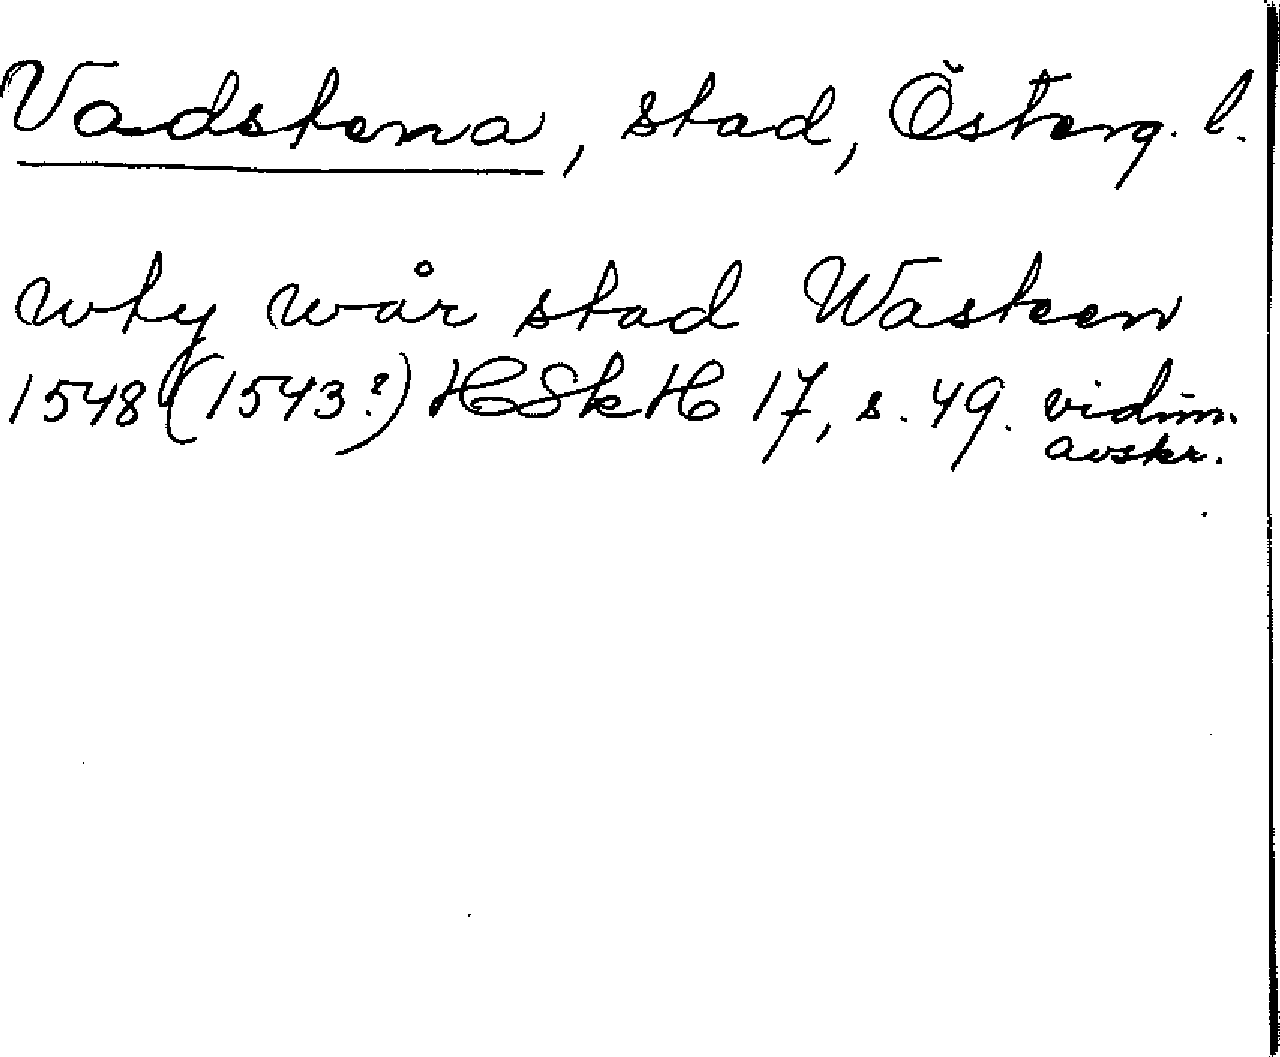 Vadstena, stad, Österg. l.
wty wår stad Wasteen
1548 (1543?) HSkH 17, s. 49. vidim.
avskr.